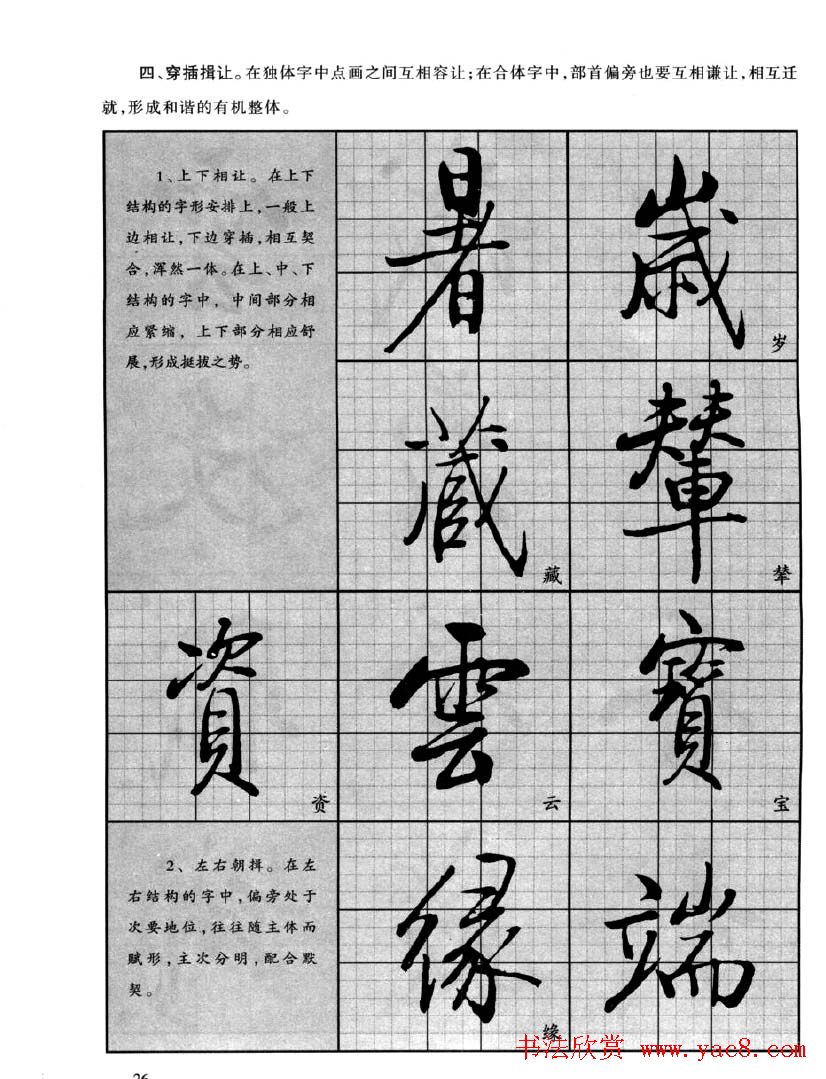 四、穿插揖让。在独体字中点画之间互相容让;在合体字中,部首偏旁也要互相谦让,相互迁
就,形成和谐的有机整体。
1、上下相让。在上下
结构的字形安排上,一般上
边相让,下边穿插,相互契
合,浑然一体。在上、中、下
结构的字中,中间部分相
应紧缩,上下部分相应舒
展,形成挺拔之势。
暑
歲
岁
藏
藏
輦
辇
資
资
雲
云
寶
宝
2、左右朝揖。在左
右结构的字中,偏旁处于
次要地位,往往随主体而
赋形,主次分明,配合默
契。
緣
缘
端
书法欣赏 www.yac8.com
26